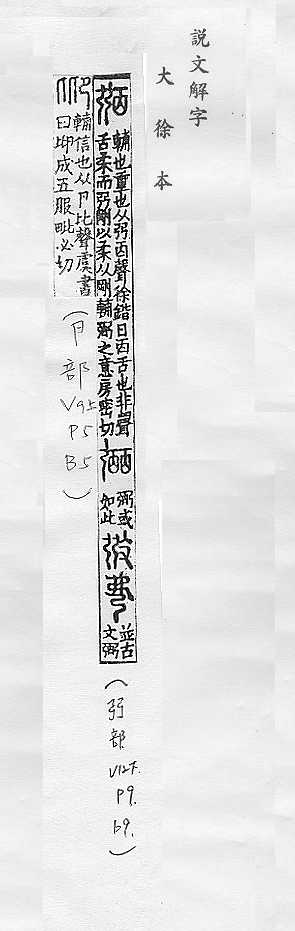 説文解字
大徐本
輔也重也从弜㐁聲徐鍇曰㐁舌也非聲
舌柔而弜剛以柔从剛輔弼之意房密切
弼或
如此
並古
文弼
(弜部 V12下. P9. b9.)
輔信也从卪比聲虞書
曰㔻成五服毗必切
(卪部 V9上 P5 B5)